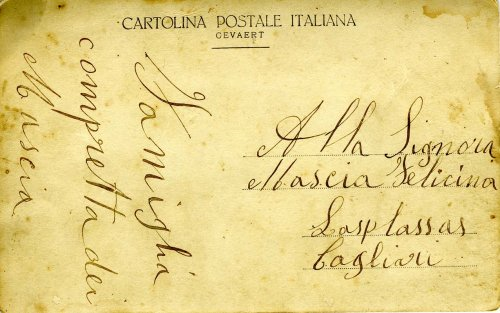 CARTOLINA POSTALE ITALIANA
GEVAERT
Famiglia
compretta dei
Mascia
Alla Signora
Mascia Felicina
Lasplassas
Cagliari